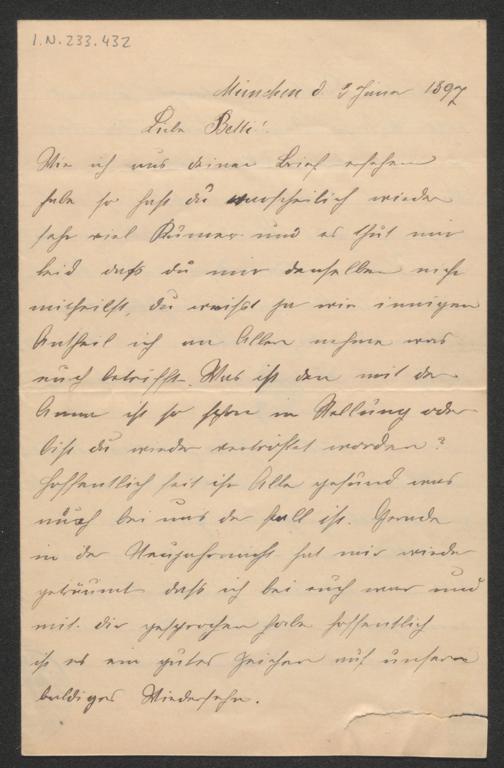 I.N. 233.432
München d. 2 Jäner 1897
Liebe Betti!
Wie ich aus deinen Brief ersehen
habe so hast du warscheilich wieder
sehr viel Kumer und es thut mir
leid daß du mir denselben nicht
mittheilst, du weißt ja wie innigen
Antheil ich an Allen nehme was
euch betrifft. Was ist den mit der
Anna ist sie schon in Stellung oder
bist du wieder vertröstet worden?
Hoffentlich seit ihr Alle gesund was
auch bei uns der Fall ist. Gerade
in der Neujahrnacht hat mir wieder
geträumt daß ich bei euch war und
mit dir gesprochen habe hoffentlich
ist es ein gutes Zeichen auf unseren
baldiges Wiedersehn.